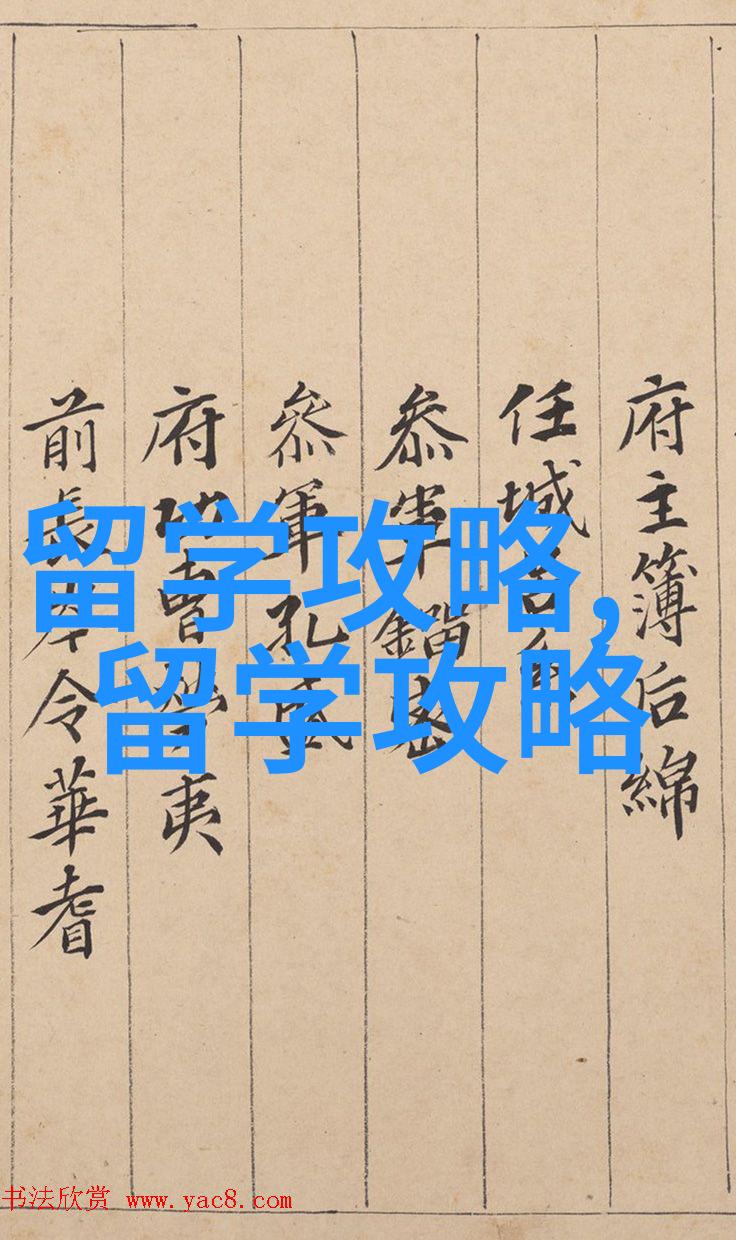 府主簿后綿
任城
叅軍密
叅軍孔盛
府功曹勞夷
前長岑令華耆
留学攻略,
留学攻略
书法欣赏 www.yac8.com